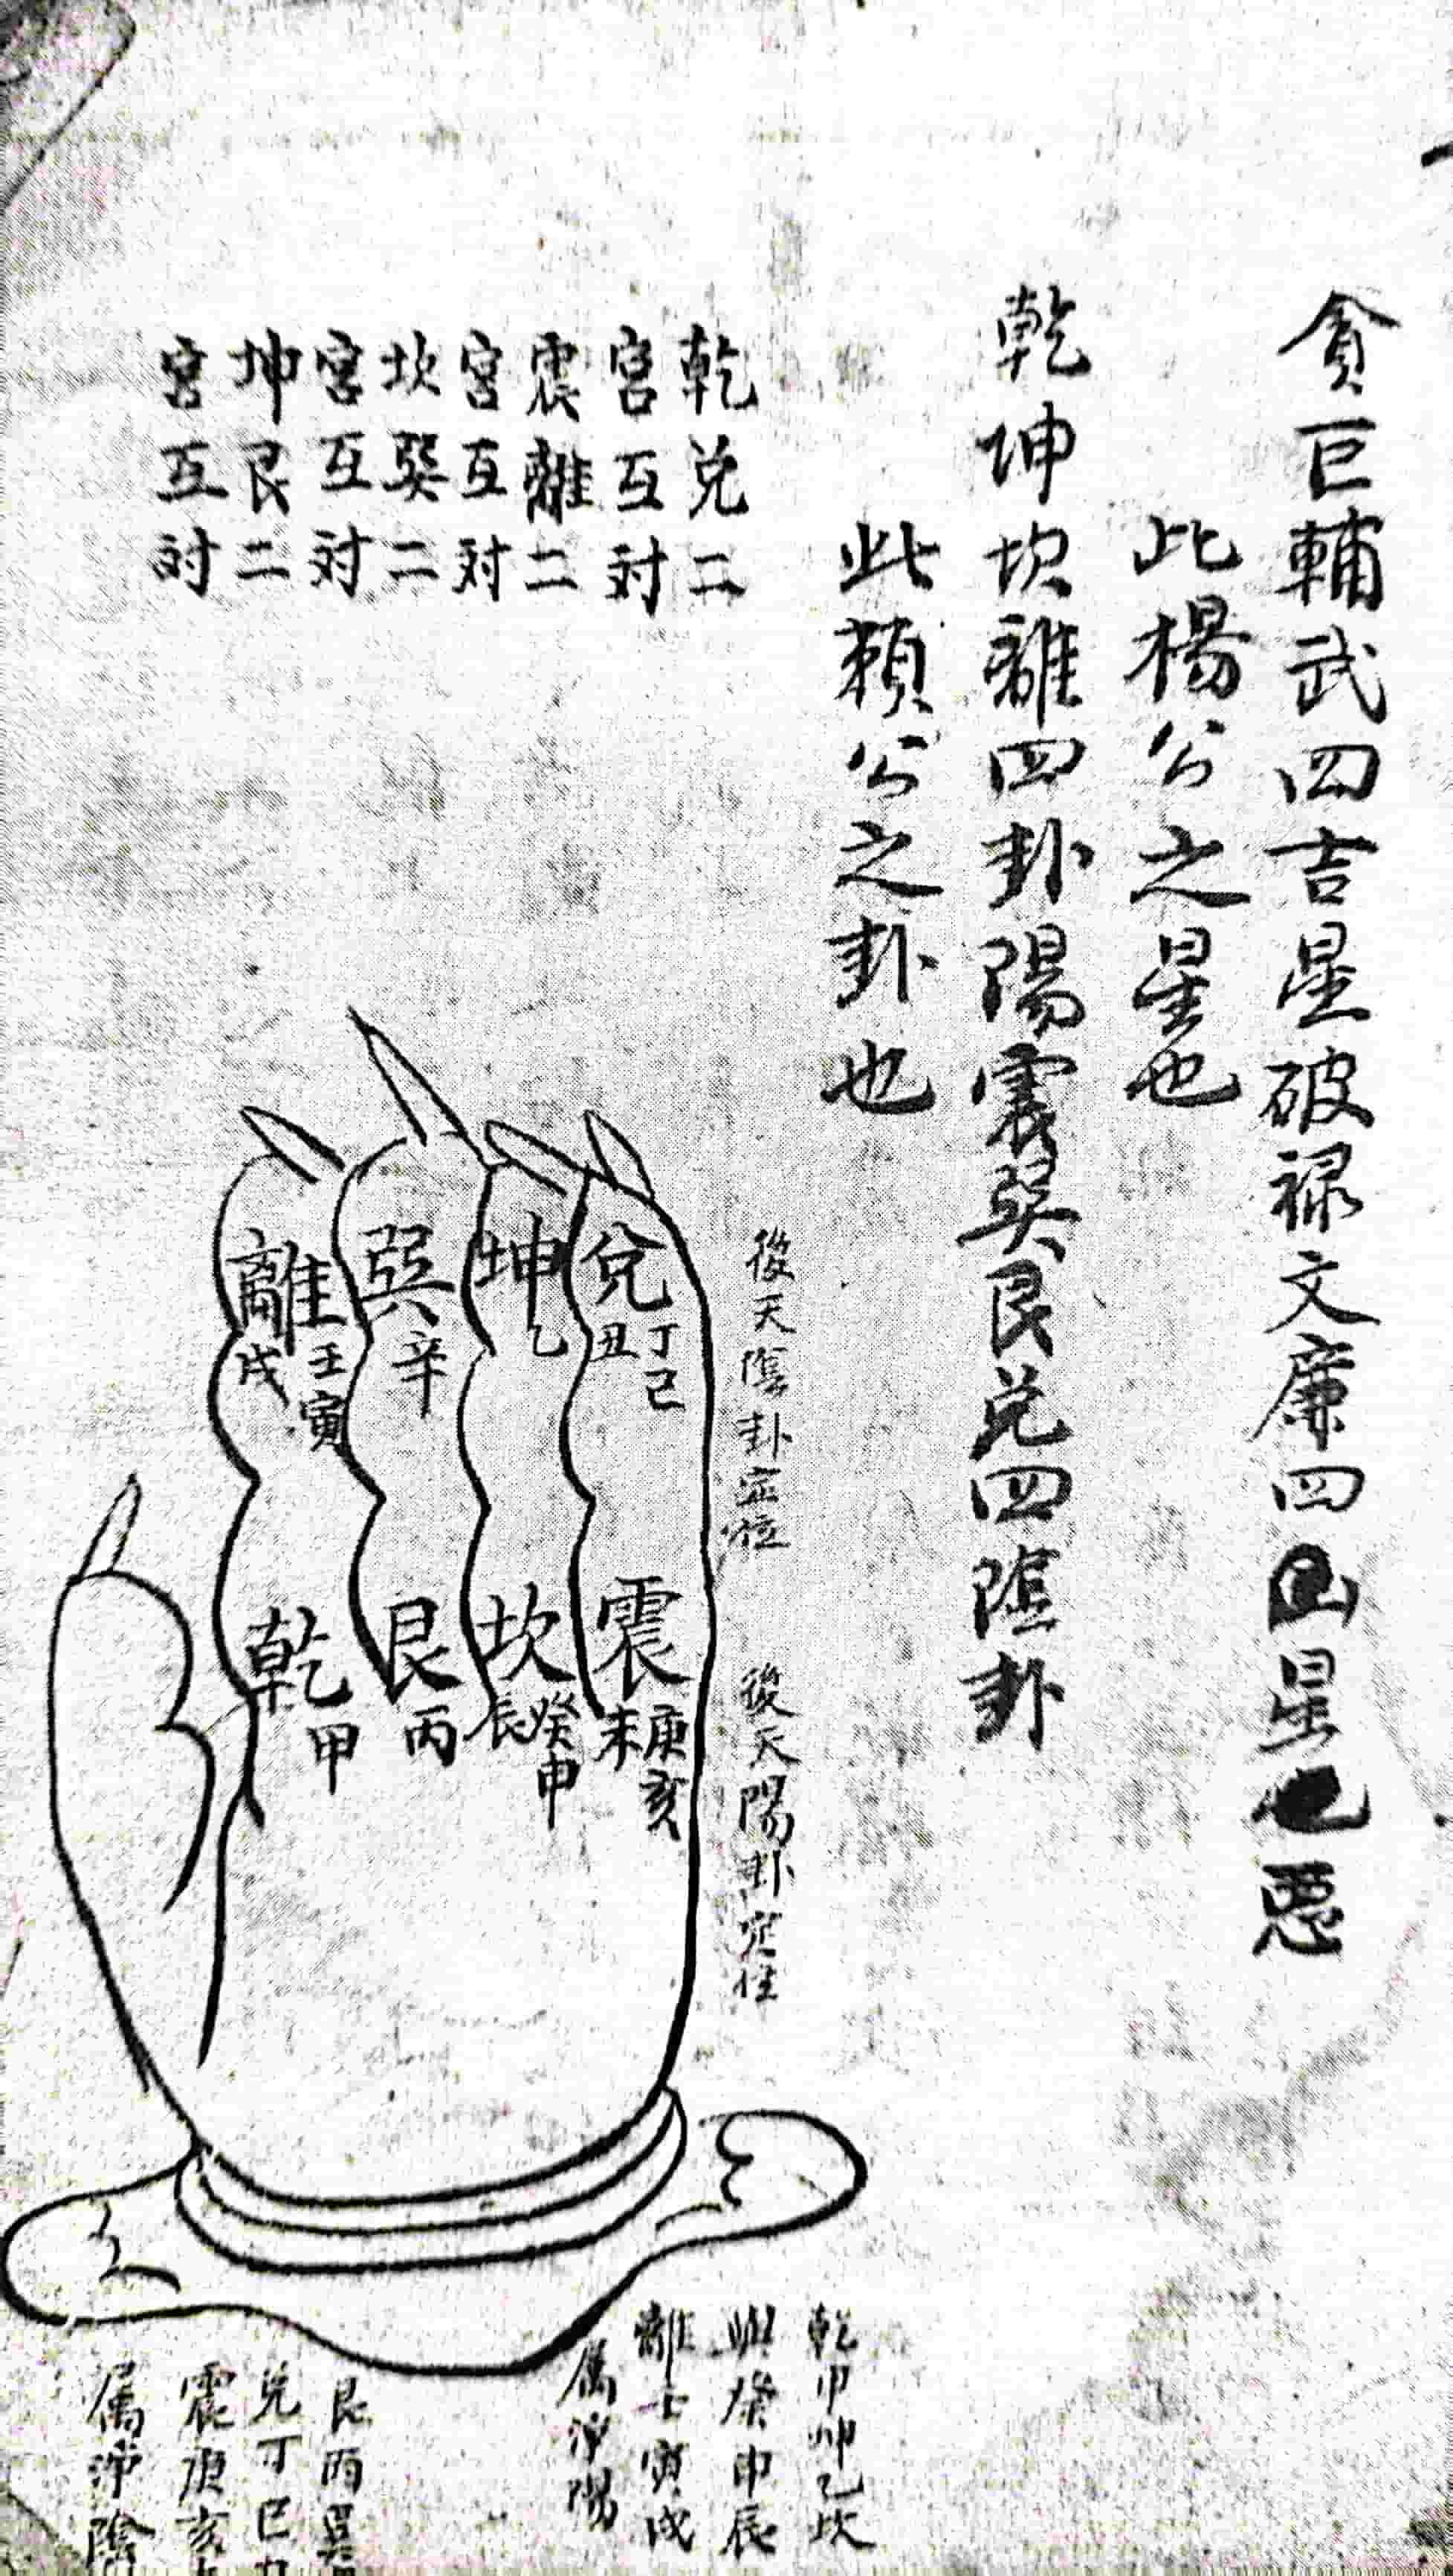 貪巨輔武四吉星破禄文廉四凶星也惡
此楊公之星也
乾坤坎離四卦陽震巽艮兑四陰卦
此頼公之卦也
乾兑二
宮互対
震離二
宮互対
坎巽二
宮互対
坤艮二
宮互対
後天陰卦定位
後天陽卦定位
兌
丁巳
丑
坤
乙
巽
辛
離
壬寅
戌
震
庚亥
未
坎
癸申
辰
艮
丙
乾
甲
乾甲坤乙坎
癸申辰
離壬寅戌
属淨陽
艮丙巽
兑丁巳丑
震庚亥
属淨陰